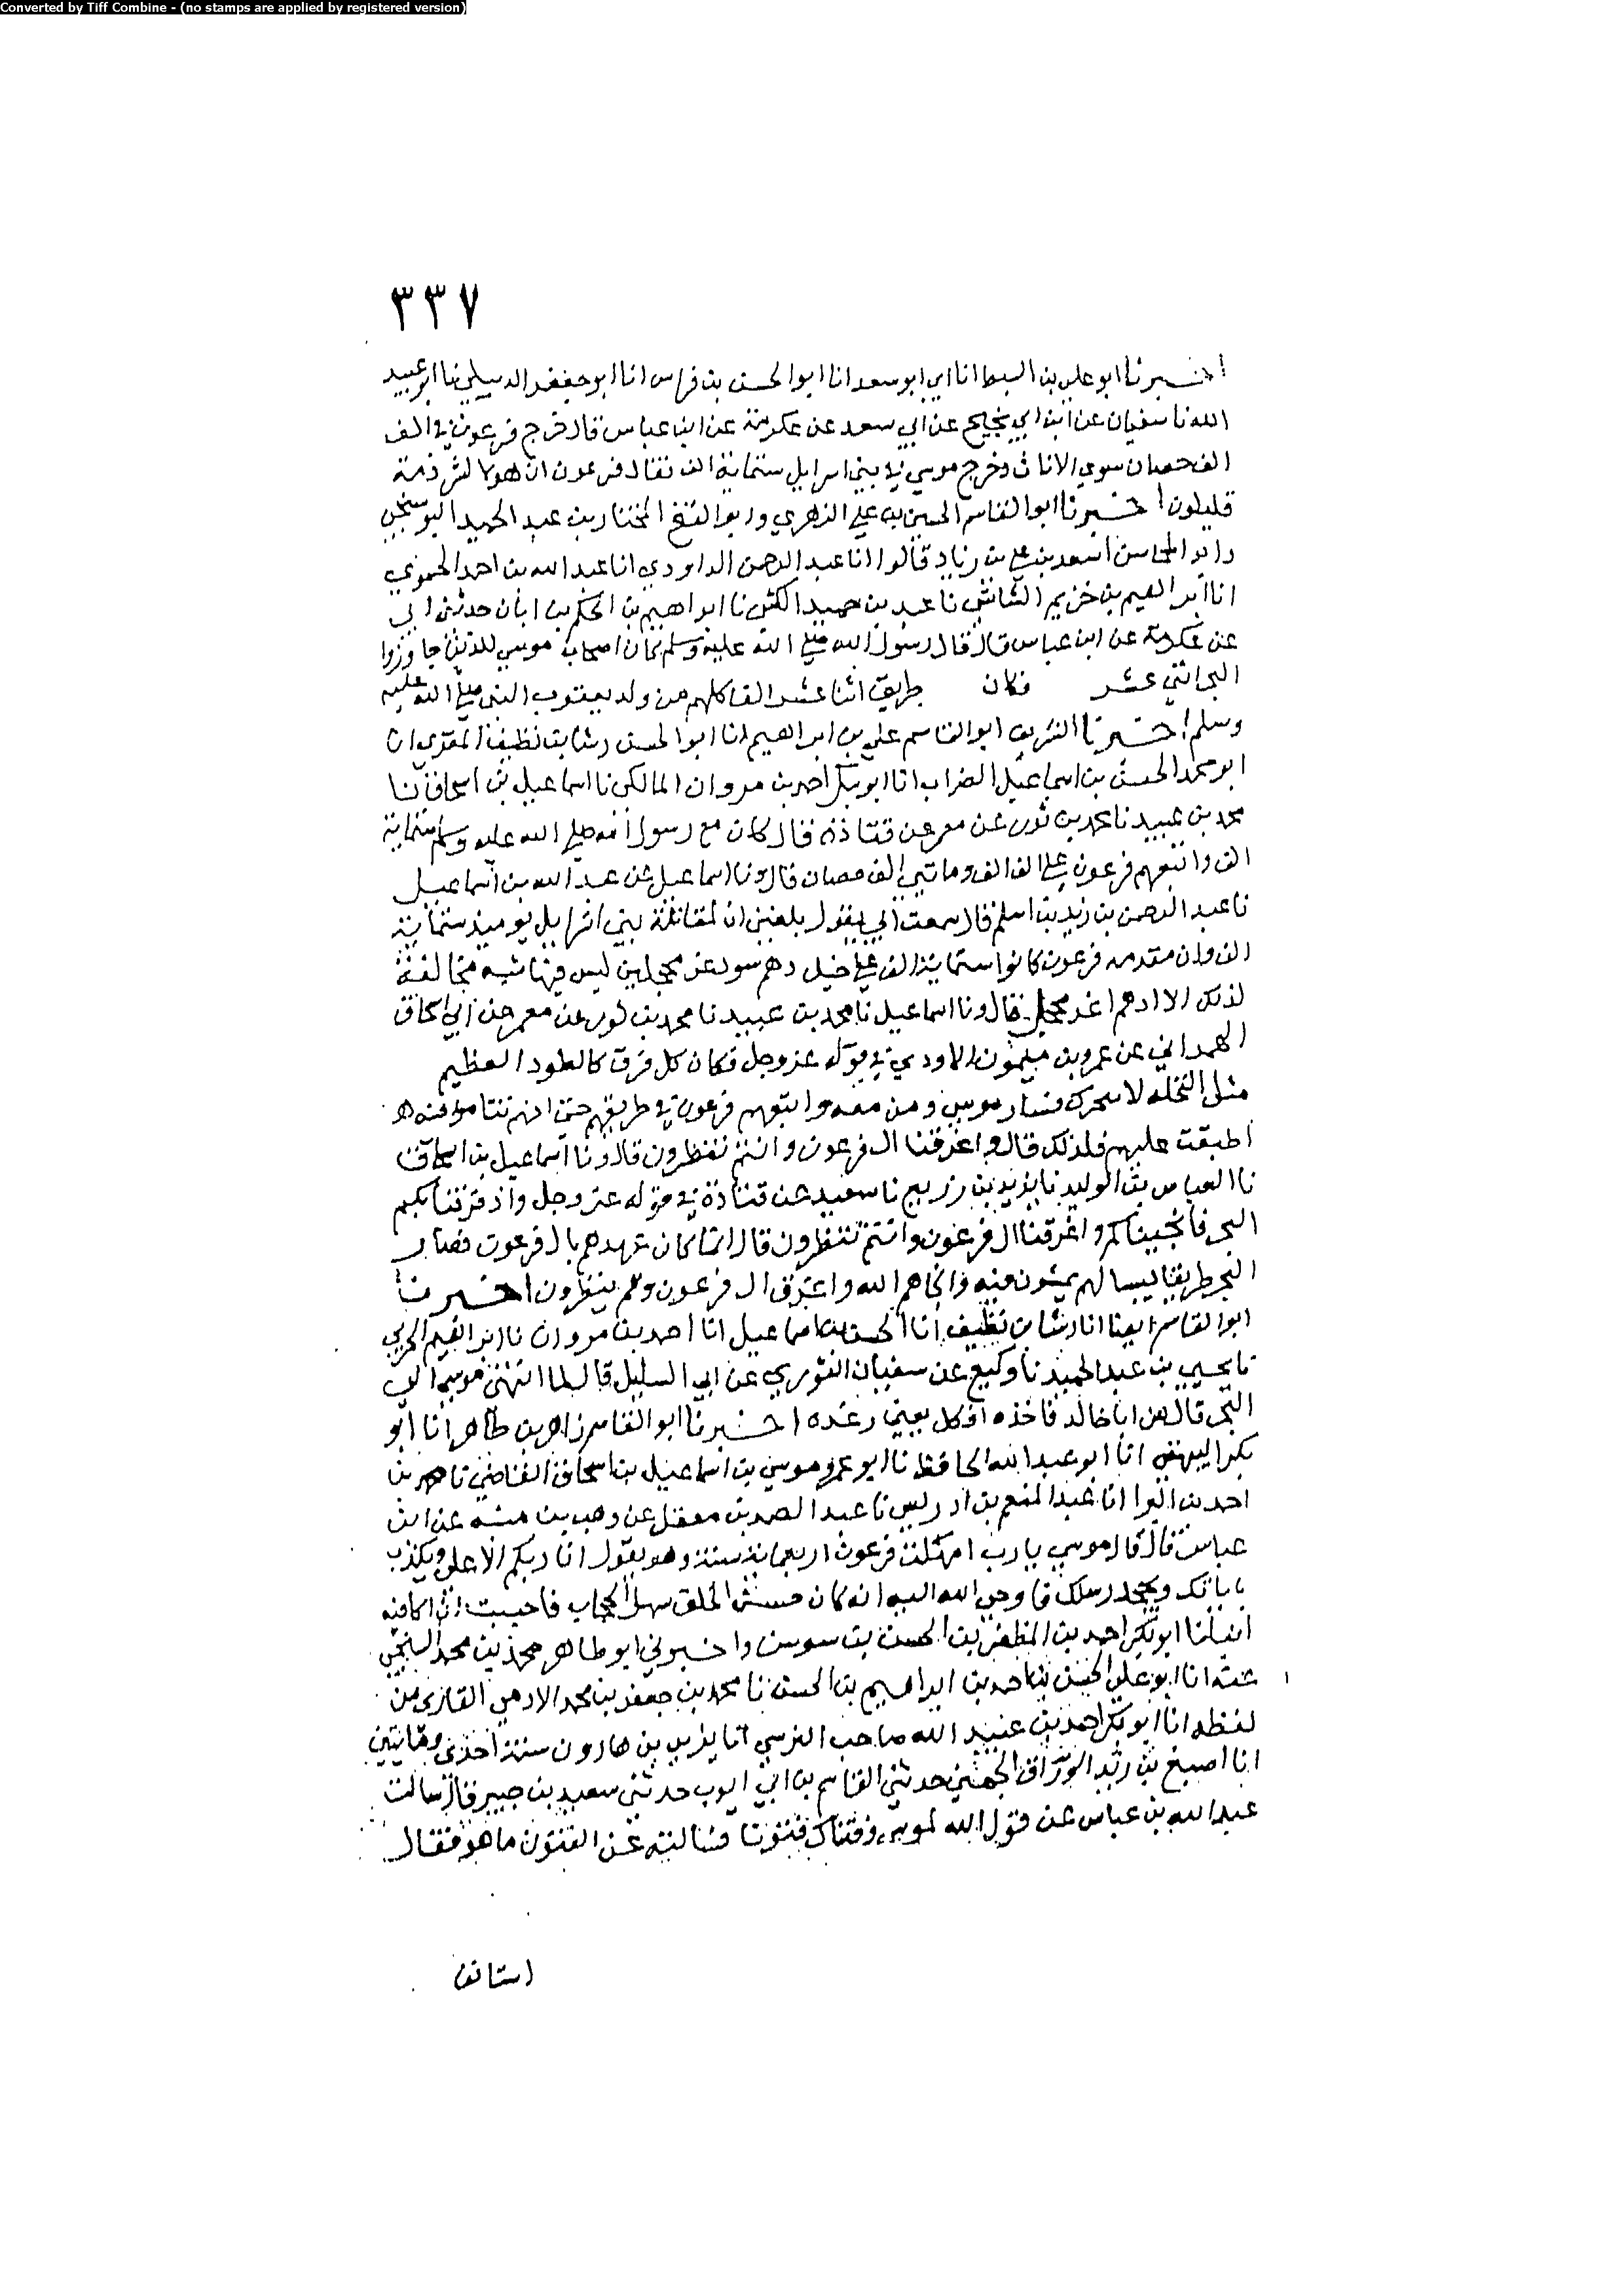 Converted by Tiff Combine - (no stamps are applied by registered version)
٣٣٧
اخبرنا ابو علي بن السبط انا ابي ابو سعد انا ابو الحسن بن فراس انا ابو جعفر الديبلي نا ابو عبيد
الله نا سفيان عن ابن ابي نجيح عن ابي سعد عن عكرمة عن ابن عباس قال خرج فرعون في الف
الف حصان سوى الاناث وخرج موسي في بني اسرايل ستماية الف فقال فرعون ان هولا لشرذمة
قليلون اخبرنا ابو القاسم الحسين بن علي الزهري وابو الفتح المختار بن عبد الحميد البوسنجي
وابو المحاسن اسعد بن علي بن زياد قالوا انا عبد الرحمن الداودي انا عبد الله بن احمد الحموي
انا ابراهيم بن خزيم الشاشي نا عبد بن حميد الكشي نا ابراهيم بن الحكم بن ابان حدثني ابي
عن عكرمة عن ابن عباس قال قال رسول الله صلي الله عليه وسلم كان اصحاب موسي الذين جاوزوا
البحر اثني عشر فكان طريق اثنا عشر الفا كلهم من ولد يعقوب النبي صلي الله عليه
وسلم اخبرنا الشريف ابو القاسم علي بن ابراهيم انا ابو الحسن رشا بن نظيف المقري انا
ابو محمد الحسن بن اسماعيل الضراب انا ابو بكر احمد بن مروان المالكي نا اسماعيل بن اسحاق نا
محمد بن عبيد نا محمد بن ثور عن معمر عن قتادة قال كان مع رسول الله صلي الله عليه وسلم ستماية
الف واتبعهم فرعون علي الف الف ومائتي الف حصان قال ونا اسماعيل عن عبد الله بن اسماعيل
نا عبد الرحمن بن زيد بن اسلم قال سمعت ابي يقول بلغني ان لمقاتلة بني اسرايل يوميذ ستماية
الف وان مقدمه فرعون كانوا ستماية الف علي خيل دهم سود غر محجلين ليس فيها شيه مخالفة
لذلك الا ادهم اغر محجل قال ونا اسماعيل نا محمد بن عبيد نا محمد بن ثور عن معمر عن ابي اسحاق
الهمداني عن عمرو بن ميمون الاودي في قوله عز وجل فكان كل فرق كالطود العظيم
مثل النخله لا يتحرك فسار موسي ومن معه واتبعهم فرعون في طريقهم حتي انهم تتاموا فيه
اطبقت عليهم فلذلك قال واغرقنا ال فرعون وانتم تنظرون قال ونا اسماعيل بن اسحاق
نا العباس بن الوليد نا يزيد بن زريع نا سعيد عن قتادة في قوله عز وجل واذ فرقنا بكم
البحر فانجيناكم واغرقنا ال فرعون وانتم تنظرون قال انما كان عهدهم بال فرعون فصار
البحر طريقا يبسا لهم يمشون فيه وانجاهم الله واغرق ال فرعون وهم ينظرون اخبرنا
ابو القاسم ايضا انا رشا بن نظيف انا الحسن بن اسماعيل انا احمد بن مروان نا ابراهيم الحربي
نا يحيي بن عبد الحميد نا وكيع عن سفيان الثوري عن ابي السليل قال لما انتهي موسي الي
البحر قال هن ابا خالد فاخذه افكل يعني رعده اخبرنا ابو القاسم زاهر بن طاهر انا ابو
بكر البيهقي انا ابو عبد الله الحافظ نا ابو عمرو موسي بن اسماعيل بن اسحاق القاضي نا محمد بن
احمد بن البرا انا عبد المنعم بن ادريس نا عبد الصمد بن معقل عن وهب بن منبه عن ابن
عباس قال قال موسي يا رب امهلت فرعون اربعماية سنة وهو يقول انا ربكم الاعلي ويكذب
باياتك ويجحد رسلك فاوحي الله اليه انه كان حسن الخلق سهل الحجاب فاحببت ان اكافيه
انبانا ابو بكر احمد بن المظفر بن الحسن بن سوسن واخبرني ابو طاهر محمد بن محمد السنجي
عنه انا ابو علي الحسن بن احمد بن ابراهيم بن الحسن نا محمد بن جعفر بن محمد الادمي القاري من
لفظه انا ابو بكر احمد بن عبيد الله صاحب النرسي انا يزيد بن هارون سنة احدى ومايتين
انا اصبغ بن زيد الوراق الجهني حدثني القاسم بن ابي ايوب حدثني سعيد بن جبير قال سالت
عبد الله بن عباس عن قول الله لموسي وفتناك فتونا فسالته عن الفتون ما هو فقال
استانف